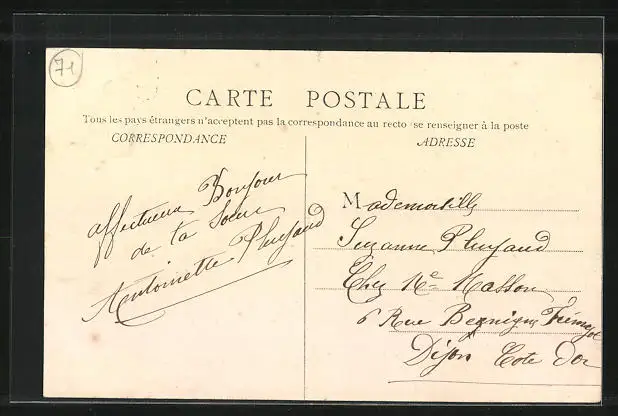 71
CARTE POSTALE
Tous les pays étrangers n'acceptent pas la correspondance au recto se renseigner à la poste
CORRESPONDANCE
ADRESSE
affectueux Bonjour
de ta Soeur
Antoinette
Mademoiselle
Suzanne
Chez Me Masson
6 Rue Frémyot
Dijon Cote d'or